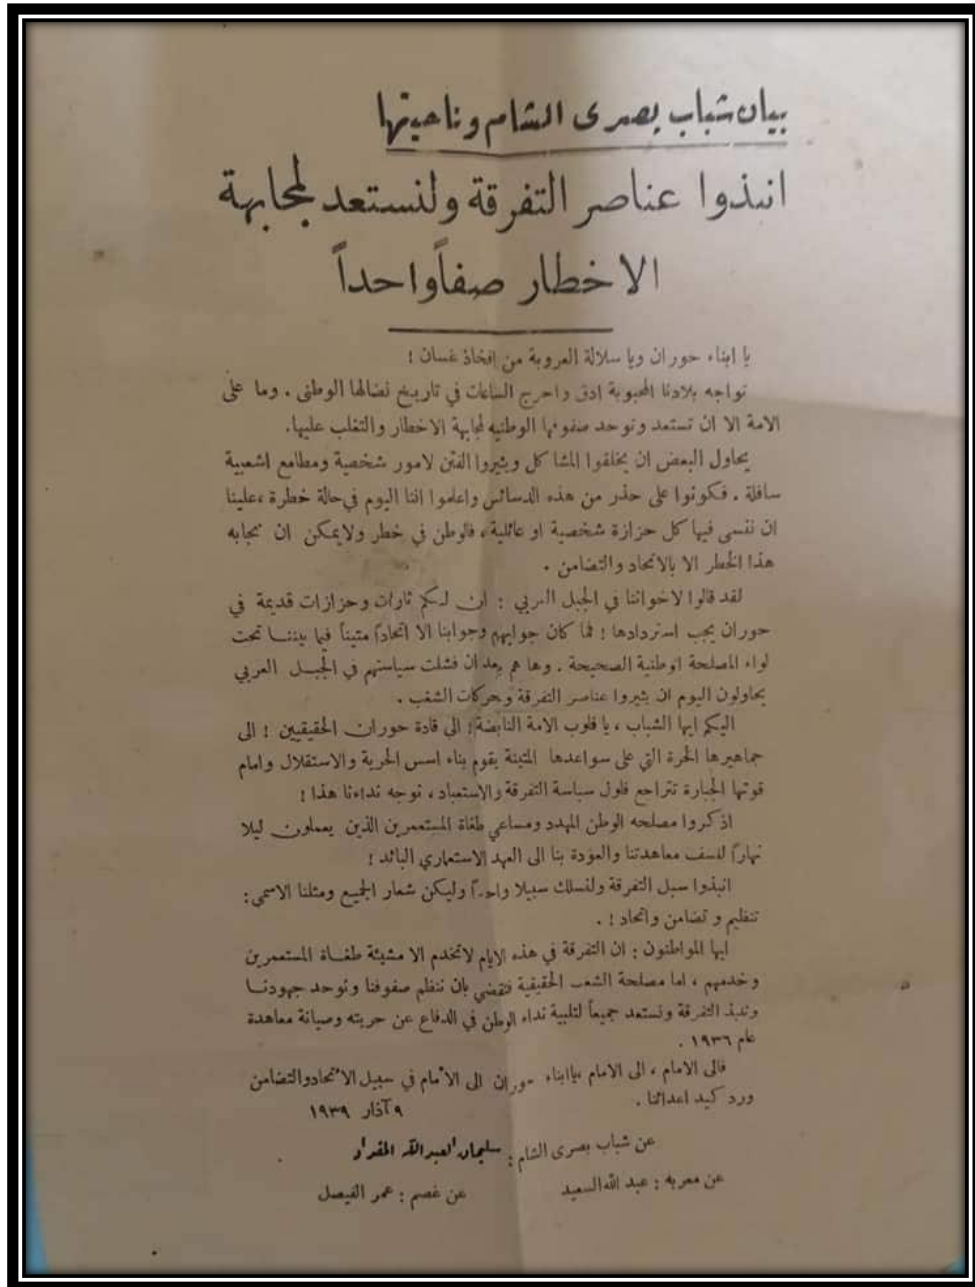 بيان شباب بصرى الشام وناحيتها
انبذوا عناصر التفرقة ولنستعد لمجابهة
الاخطار صفاً واحداً
يا ابناء حوران ويا سلالة العروبة من افخاذ غسان !
تواجه بلادنا المحبوبة ادق واحرج الساعات في تاريخ نضالها الوطني . وما على
الامة الا ان تستعد وتوحد صفوفها الوطنيه لمجابهة الاخطار والتغلب عليها.
يحاول البعض ان يخلقوا المشاكل ويثيروا الفتن لامور شخصية ومطامع اشعبية
سافلة . فكونوا على حذر من هذه الدسائس واعلموا اننا اليوم في حالة خطرة ،علينا
ان ننسى فيها كل حزازة شخصية او عائلية ، فالوطن في خطر ولايمكن ان نجابه
هذا الخطر الا بالاتحاد والتضامن .
لقد قالوا لاخواننا في الجبل العربي : ان لكم ثارات وحزازات قديمة في
حوران يجب استردادها ! فما كان جوابهم وجوابنا الا اتحاداً متيناً فيما بيننا تحت
لواء المصلحة الوطنية الصحيحة . وها هم بعد ان فشلت سياستهم في الجبل العربي
يحاولون اليوم ان يثيروا عناصر التفرقة وحركات الشغب .
اليكم ايها الشباب ، يا قلوب الامة النابضة ! الى قادة حوران الحقيقيين ! الى
جماهيرها الحرة التي على سواعدها المتينة يقوم بناء اسس الحرية والاستقلال وامام
قوتها الجبارة تتراجع فلول سياسة التفرقة والاستعباد ، نوجه نداءنا هذا !
اذكروا مصلحه الوطن المهدد ومساعي طغاة المستعمرين الذين يعملون ليلا
نهاراً لنسف معاهدتنا والعودة بنا الى العهد الاستعماري البائد !
انبذوا سبل التفرقة ولنسلك سبيلا واحداً وليكن شعار الجميع ومثلنا الاسمى :
تنظيم و تضامن واتحاد ! .
ايها المواطنون : ان التفرقة في هذه الايام لاتخدم الا مشيئة طغاة المستعمرين
وخدمهم ، اما مصلحة الشعب الحقيقية فتقضي بان ننظم صفوفنا ونوحد جهودنا
وننبذ التفرقة ونستعد جميعاً لتلبية نداء الوطن في الدفاع عن حريته وصيانة معاهدة
عام ١٩٣٦ .
فالى الامام ، الى الامام ياابناء حوران الى الأمام في سبيل الاتحادوالتضامن
ورد كيد اعدائنا .
٩ آذار ١٩٣٩
عن شباب بصرى الشام : سليمان العبدالله المقداد
عن معربه : عبد الله السعيد
عن غصم : عمر الفيصل